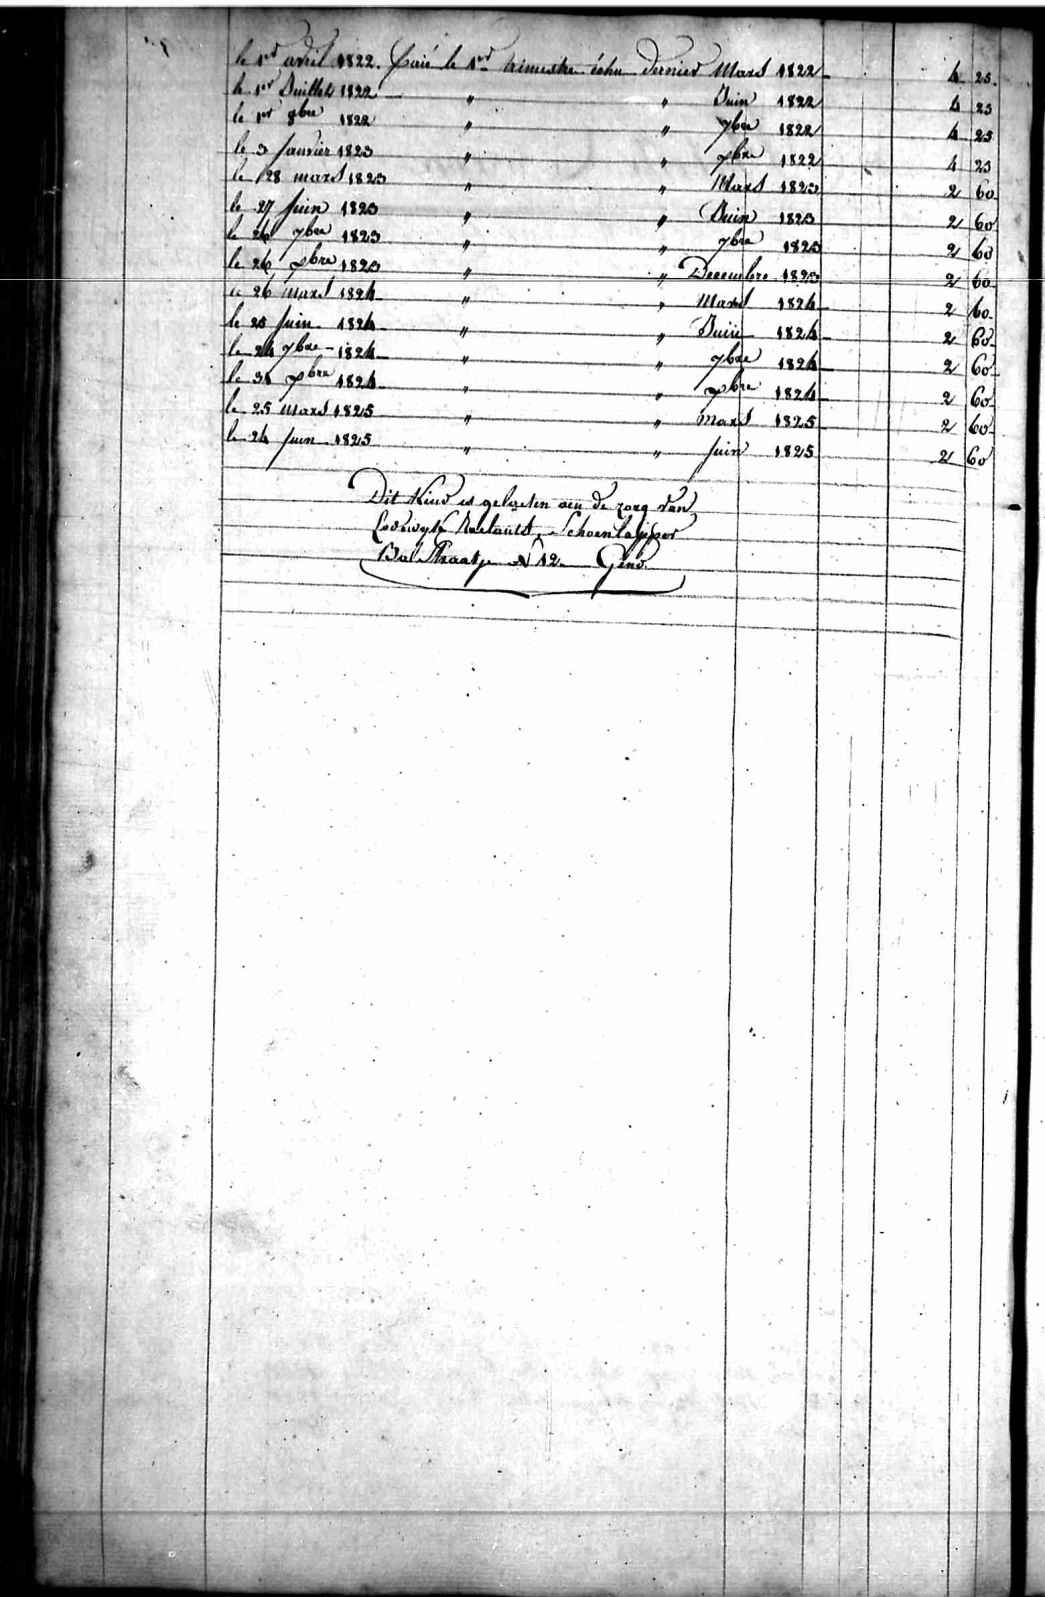 le 1er avril 1822. Paié le 1er trimestre échu dernier Mars 1822 4 25
le 1er Juillet 1822 " " Juin 1822 4 25
le 1er 8bre 1822 " " 7bre 1822 4 25
le 3 Janvier 1823 " " Xbre 1822 4 25
le 28 mars 1823 " " Mars 1823 2 60
le 27 Juin 1823 " " Juin 1823 2 60
le 26 7bre 1823 " " 7bre 1823 2 60
le 26 Xbre 1823 " " Decembre 1823 2 60
le 26 Mars 1824 " " Mars 1824 2 60
le 25 Juin 1824 " " Juin 1824 2 60
le 24 7bre 1824 " " 7bre 1824 2 60
le 31 Xbre 1824 " " Xbre 1824 2 60
le 25 Mars 1825 " " Mars 1825 2 60
le 24 Juin 1825 " " Juin 1825 2 60
Dit Kind is gelaeten aen de zorg van
Lodewyk Schoenlapper
Straatje N 12 Gend.